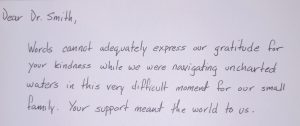 Dear Dr. Smith,
Words cannot adequately express our gratitude for
your kindness while we were navigating uncharted
waters in this very difficult moment for our small
family. Your support meant the world to us.